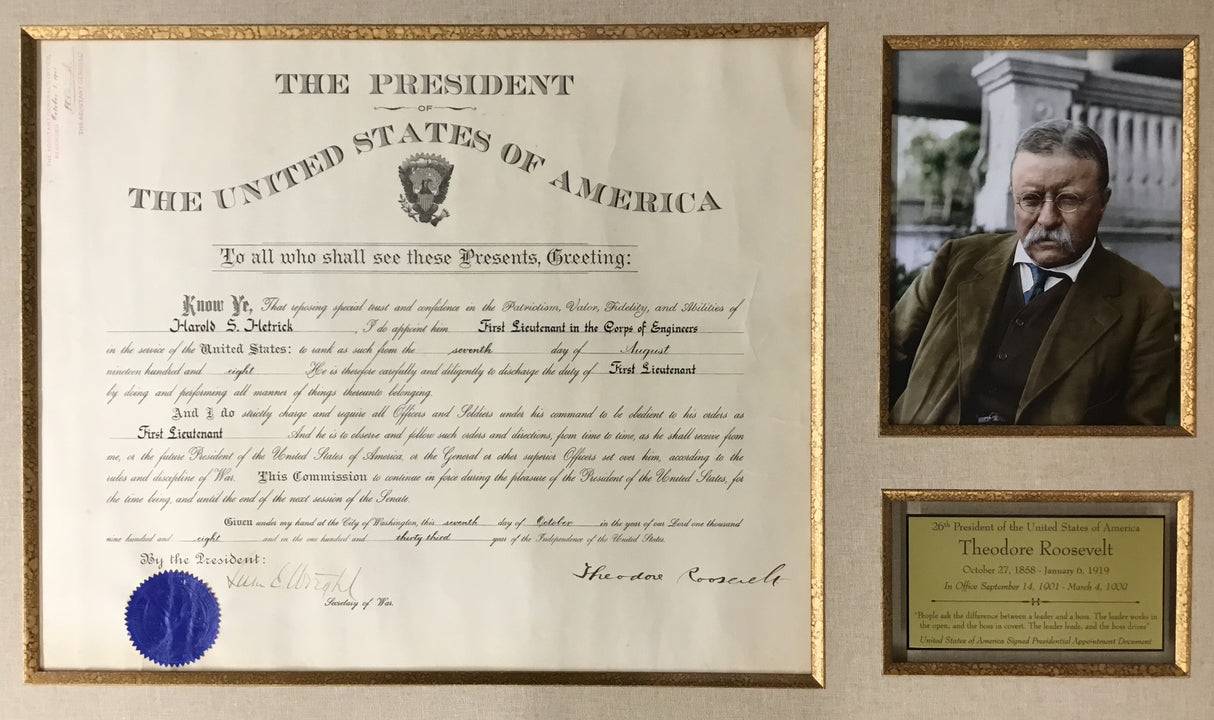 THE PRESIDENT
OF
THE UNITED STATES OF AMERICA
To all who shall see these Presents, Greeting:
Know Ye, That reposing special trust and confidence in the Patriotism, Valor, Fidelity, and Abilities of
Harold S. Hetrick, I do appoint him First Lieutenant in the Corps of Engineers
in the service of the United States: to rank as such from the seventh day of August
nineteen hundred and eight He is therefore carefully and diligently to discharge the duty of First Lieutenant
by doing and performing all manner of things thereunto belonging.
And I do strictly charge and require all Officers and Soldiers under his command to be obedient to his orders as
First Lieutenant And he is to observe and follow such orders and directions, from time to time, as he shall receive from
me, or the future President of the United States of America, or the General or other superior Officers set over him, according to the
rules and discipline of War. This Commission to continue in force during the pleasure of the President of the United States, for
the time being, and until the end of the next session of the Senate.
Given under my hand at the City of Washington, this seventh day of October in the year of our Lord one thousand
nine hundred and eight and in the one hundred and thirty third year of the Independence of the United States.
By the President:
Luke E Wright
Theodore Roosevelt
Secretary of War.
26th President of the United States of America
Theodore Roosevelt
October 27, 1858 - January 6, 1919
In Office September 14, 1901 - March 4, 1909
"People ask the difference between a leader and a boss. The leader works in
the open, and the boss in covert. The leader leads, and the boss drives"
United States of America Signed Presidential Appointment Document